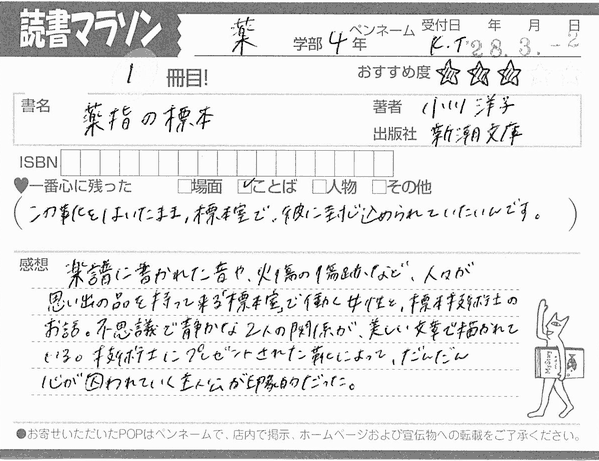 読書マラソン
薬 学部 4 年 ペンネーム K.T 受付日 年 月 日
28.3.-2
1 冊目! おすすめ度 ☆☆☆
書名 薬指の標本 著者 小川洋子
出版社 新潮文庫
ISBN
♥一番心に残った □場面 ☑ことば □人物 □その他
(この靴をはいたまま,標本室で,彼に封じ込められていたいんです。)
感想 楽譜に書かれた音や,火傷の傷跡など,人々が
思い出の品を持って来る「標本室」で働く女性と,標本技術士の
お話。不思議で静かな2人の関係が,美しい文章で描かれて
いる。技術士にプレゼントされた靴によって,だんだん
心が囚われていく主人公が印象的だった。
●お寄せいただいたPOPはペンネームで、店内で掲示、ホームページおよび宣伝物への転載をご了承ください。